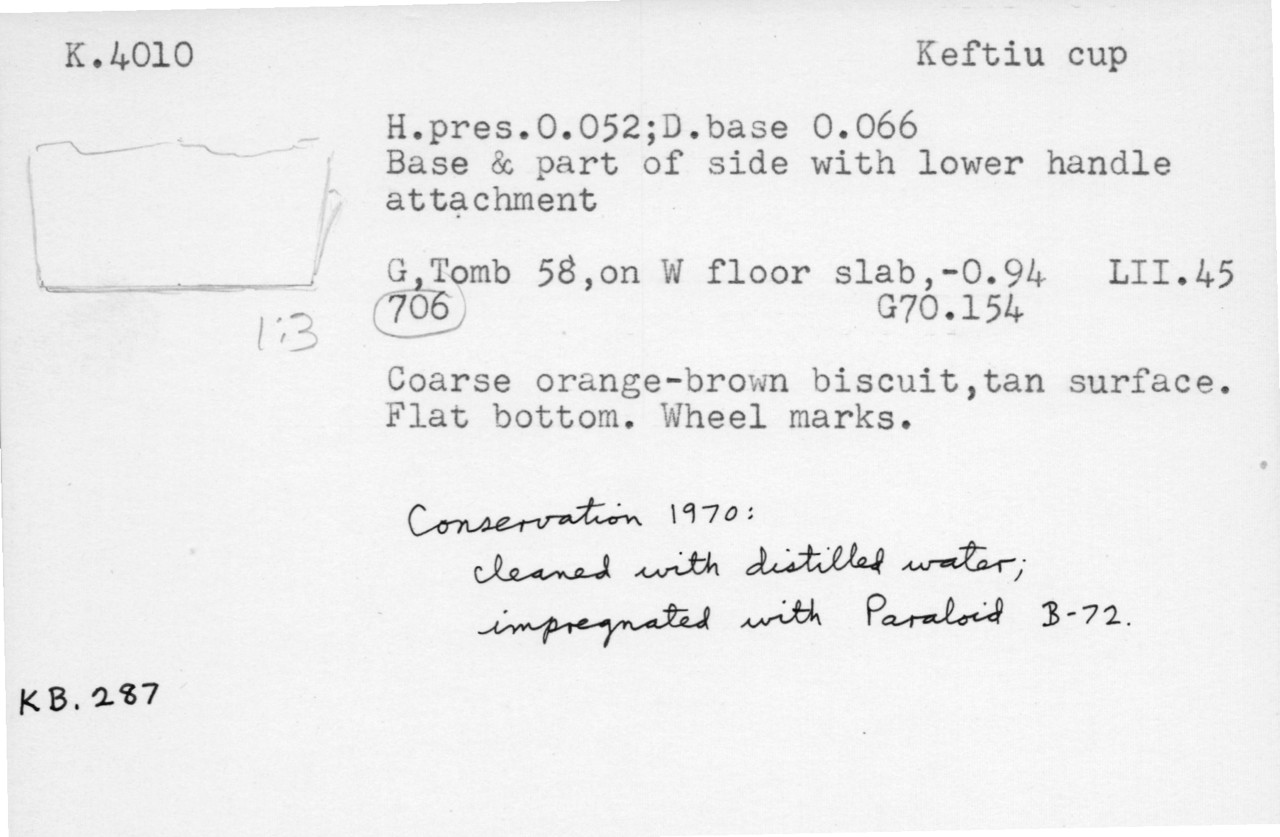 K.4010 Keftiu cup
H.pres.0.052;D.base 0.066
Base & part of side with lower handle
attachment
G,Tomb 58,on W floor slab,-0.94 LII.45
706 G70.154
1:3
Coarse orange-brown biscuit,tan surface.
Flat bottom. Wheel marks.
Conservation 1970:
cleaned with distilled water;
impregnated with Paraloid B-72.
KB.287